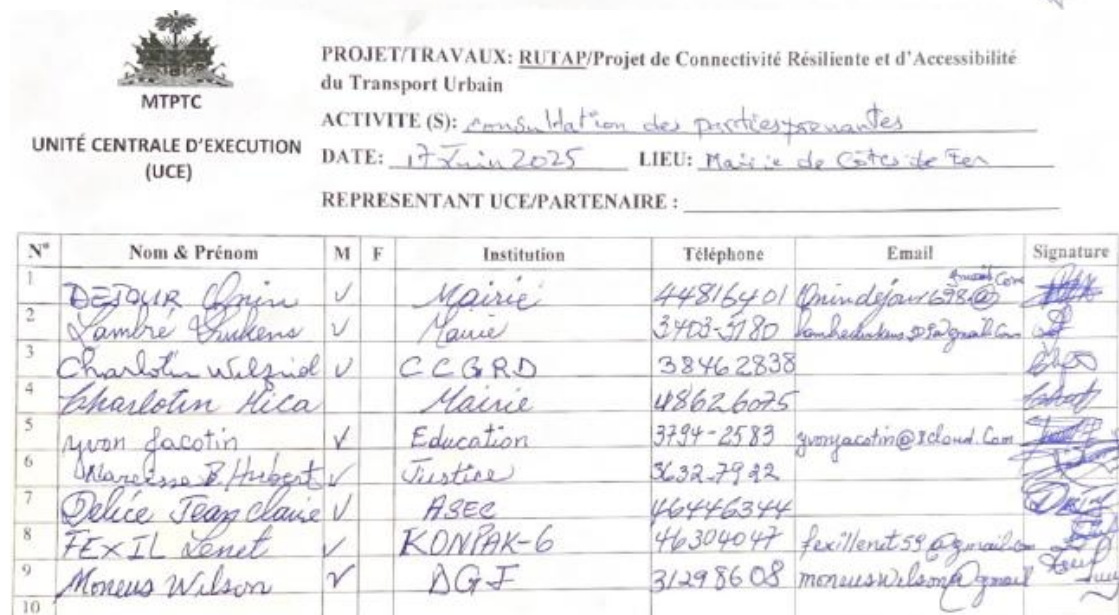 MTPTC
UNITÉ CENTRALE D'EXECUTION
(UCE)
PROJET/TRAVAUX: RUTAP/Projet de Connectivité Résiliente et d'Accessibilité
du Transport Urbain
ACTIVITE (S): consultation des parties prenantes
DATE: 17 Juin 2025 LIEU: Mairie de Côtes de Fer
REPRESENTANT UCE/PARTENAIRE :
N° Nom & Prénom M F Institution Téléphone Email Signature
1 DEJOUR Onin V Mairie 44816401 Onindejour698@gmail.com
2 Lambré V Mairie 3403-3780
3 Charlotin Wilfrid V CCGRD 38462838
4 Charlotin Mairie 48626075
5 yvon Jacotin V Education 3794-2583 yvonjacotin@Icloud.Com
6 B. Hubert V Justice 3632-7922
7 Délice Jean claire V ASEC 46446344
8 FEXIL Lenet V KONPAK-6 46304047 fexillenet59@gmail.com
9 Moneus Wilson V DGI 31298608 moneuswilson@gmail
10